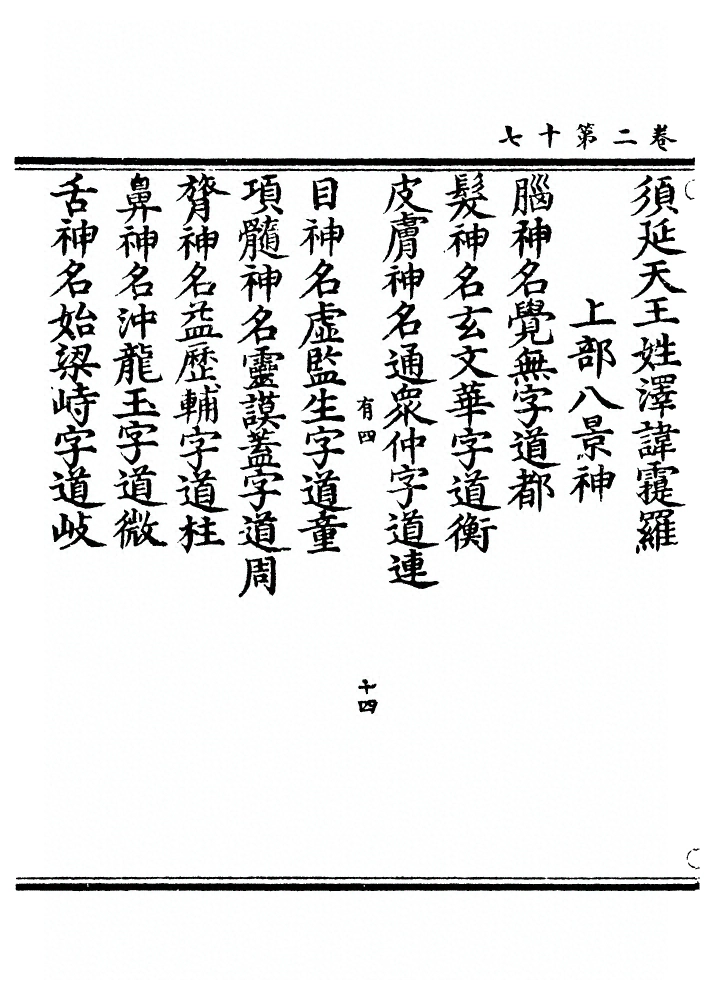 卷二第十七
須延天王姓澤諱霆羅
上部八景神
腦神名覺無字道都
髮神名玄文華字道衡
皮膚神名通衆仲字道連
有四
十四
目神名虛監生字道童
項髓神名靈謨蓋字道周
膂神名益歷輔字道柱
鼻神名沖龍玉字道微
舌神名始梁峙字道岐